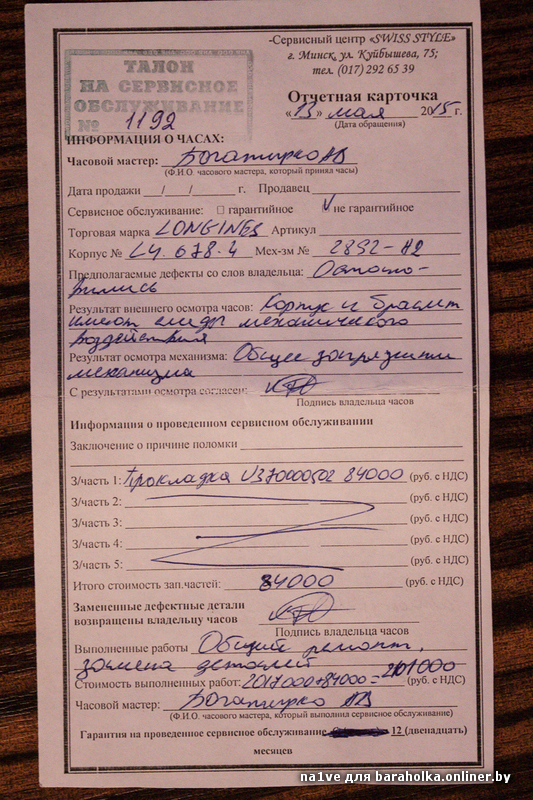 -Сервисный центр «SWISS STYLE»
г. Минск, ул. Куйбышева, 75;
тел. (017) 292 65 39
ТАЛОН
НА СЕРВИСНОЕ
ОБСЛУЖИВАНИЕ
№ 1192
Отчетная карточка
«13» мая 2015 г.
(Дата обращения)
ИНФОРМАЦИЯ О ЧАСАХ:
Часовой мастер: Богатырко АВ
(Ф.И.О. часового мастера, который принял часы)
Дата продажи / / г. Продавец
Сервисное обслуживание: □ гарантийное √ не гарантийное
Торговая марка LONGINES Артикул
Корпус № L4.678.4 Мех-зм № 2892-A2
Предполагаемые дефекты со слов владельца: Остано-
вились
Результат внешнего осмотра часов: Корпус и браслет
имеют следы механического
воздействия
Результат осмотра механизма: Общее загрязнение
механизма
С результатами осмотра согласен:
Подпись владельца часов
Информация о проведенном сервисном обслуживании
Заключение о причине поломки
З/часть 1: Прокладка 84000 (руб. с НДС)
З/часть 2: (руб. с НДС)
З/часть 3: (руб. с НДС)
З/часть 4: (руб. с НДС)
З/часть 5: (руб. с НДС)
Итого стоимость зап.частей: 84000 (руб. с НДС)
Замененные дефектные детали
возвращены владельцу часов
Подпись владельца часов
Выполненные работы Общий ремонт,
замена деталей
Стоимость выполненных работ: 2017000+84000= 2101000 (руб. с НДС)
Часовой мастер: Богатырко АВ
(Ф.И.О. часового мастера, который выполнил сервисное обслуживание)
Гарантия на проведенное сервисное обслуживание 12 (двенадцать)
месяцев
na1ve для baraholka.onliner.by